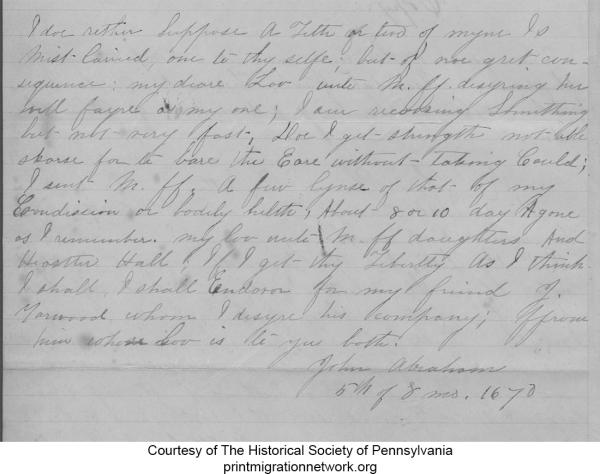 I doe rether Suppose A Letter or two of myne Is
Mist Caried, one to thy selfe; but of noe gret con-
sequence; my deare Lov unto M. ff. desyring her
well fayre as my one; I am recovring Something
but not very fast, Doe I get strength not able
skarse for to bare the Eare without taking Could;
I sent M. ff. A few lynse of that of my
Condission or bodily helth, About 8 or 10 day Agone
as I remember. my lov unto M. ff daughters And
Hall. If I get thy Libertty As I think
I shall, I shall Endevor for my friend J.
Yarwood whom I desyre his company; ffrom
him whose Lov is to you both.
John Abraham
5th of 8 mo. 1670
Courtesy of The Historical Society of Pennsylvania
printmigrationnetwork.org